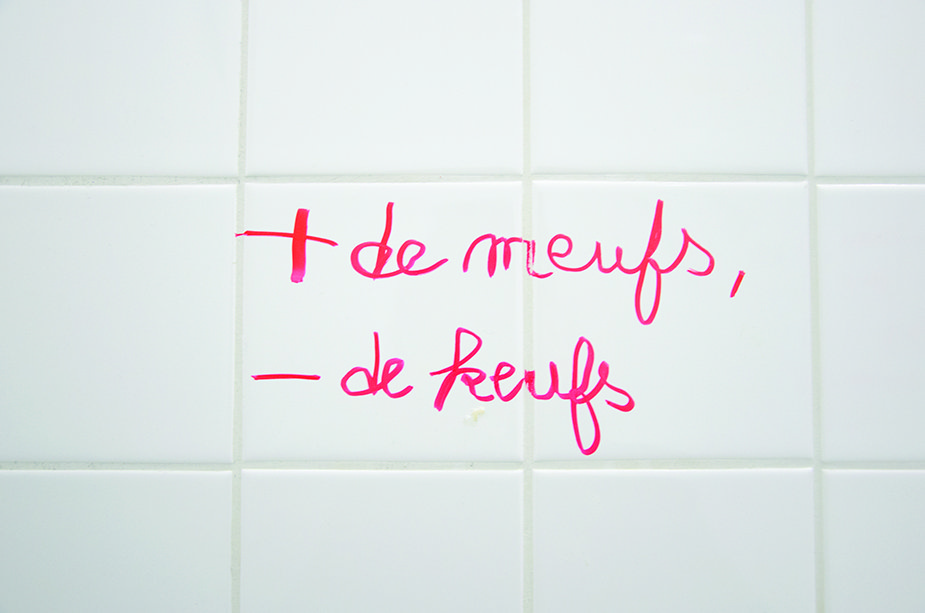 + de meufs,
- de keufs